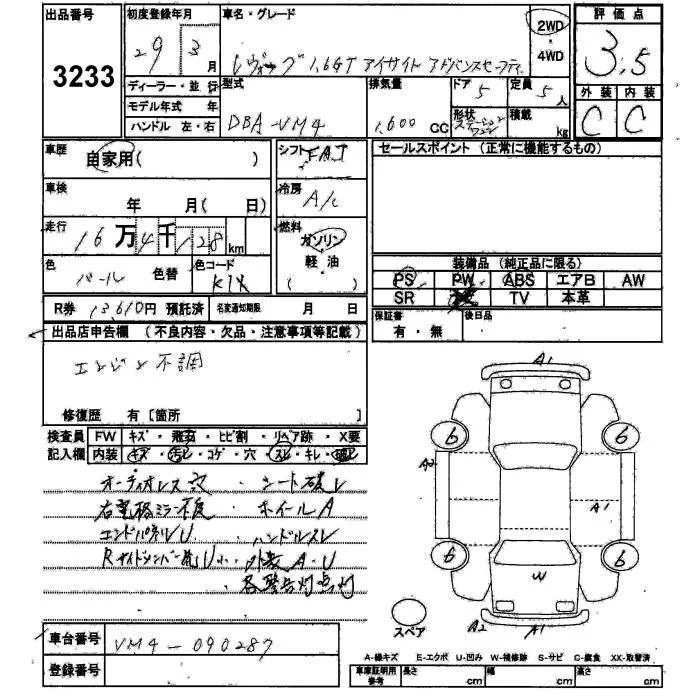 出品番号 3233
初度登録年月 29 3月
車名・グレード レヴォーグ 1.6GT アイサイト アドバンスセーフティ
2WD ・ 4WD
評価点 3.5
外装 C 内装 C
ディーラー・並行
モデル年式 年
ハンドル 左・右
型式 DBA-VM4
排気量 1,600 CC
ドア 5 定員 5人
形状 ステーションワゴン 積載 kg
車歴 自家用( )
シフト FAT
セールスポイント (正常に機能するもの)
車検 年 月( 日)
冷房 A/C
走行 16万4千128km
燃料 ガソリン 軽・油 ( )
色 パール 色替 色コード K1X
装備品 (純正品に限る)
PS PW ABS エアB AW
SR TV 本革
R券 13,610円 預託済 名変通知期限 月 日
保証書 有・無 後日品
出品店申告欄 (不良内容・欠品・注意事項等記載)
エンジン不調
修復歴 有 [箇所 ]
検査員 FW キズ・飛石・ヒビ割・リペア跡・X要
記入欄 内装 キズ・汚レ・コゲ・穴・スレ・キレ・破レ
オーディオレス ・シート破レ
右電格ミラー不良 ・ホイールA
エンドパネルU ・ハンドルスレ
Rサイドメンバー先U小 ・外装A・U
・各警告灯点灯
A1
6 6
A2 A1
6 6
W
A2 A1
スペア
車台番号 VM4-090287
登録番号
A-線キズ E-エクボ U-凹み W-補修跡 S-サビ C-腐食 XX-取替済
車庫証明用参考 長さ cm 幅 cm 高さ cm